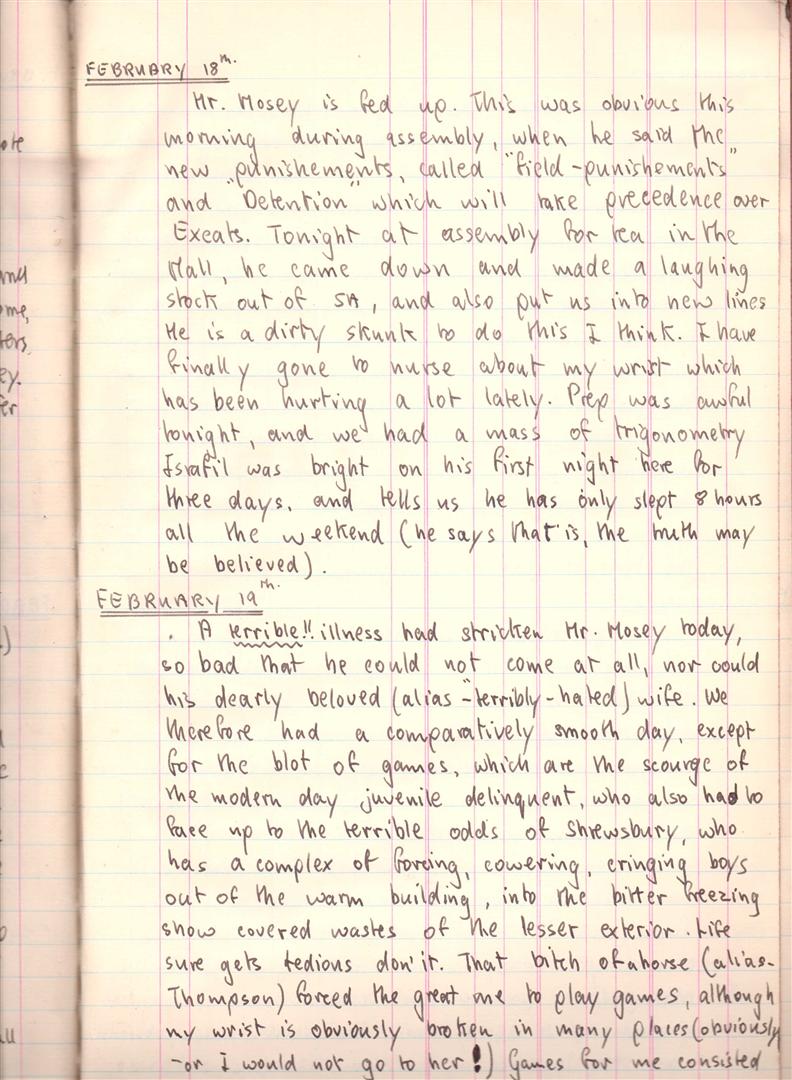 ote
and
ome,
ters
ey.
er
FEBRUARY 18th.
Mr. Mosey is fed up. This was obvious this
morning during assembly, when he said the
new punishements, called "field-punishements"
and "Detention" which will take precedence over
Exeats. Tonight at assembly for tea in the
Hall, he came down and made a laughing
stock out of 5A, and also put us into new lines
He is a dirty skunk to do this I think. I have
finally gone to nurse about my wrist which
has been hurting a lot lately. Prep was awful
tonight, and we had a mass of trigonometry
Israfil was bright on his first night here for
three days, and tells us he has only slept 8 hours
all the weekend (he says that is, the truth may
be believed).
FEBRUARY 19th.
. A terrible!! illness had stricken Mr. Mosey today,
so bad that he could not come at all, nor could
his dearly beloved (alias "terribly-hated) wife. We
therefore had a comparatively smooth day, except
for the blot of games, which are the scourge of
the modern day juvenile delinquent, who also had to
face up to the terrible odds of Shrewsbury, who
has a complex of forcing, cowering, cringing boys
out of the warm building, into the bitter freezing
snow covered wastes of the lesser exterior. Life
sure gets tedious don'it. That bitch of a horse (alias-
Thompson) forced the great me to play games, although
my wrist is obviously broken in many places (obviously
-or I would not go to her!) Games for me consisted